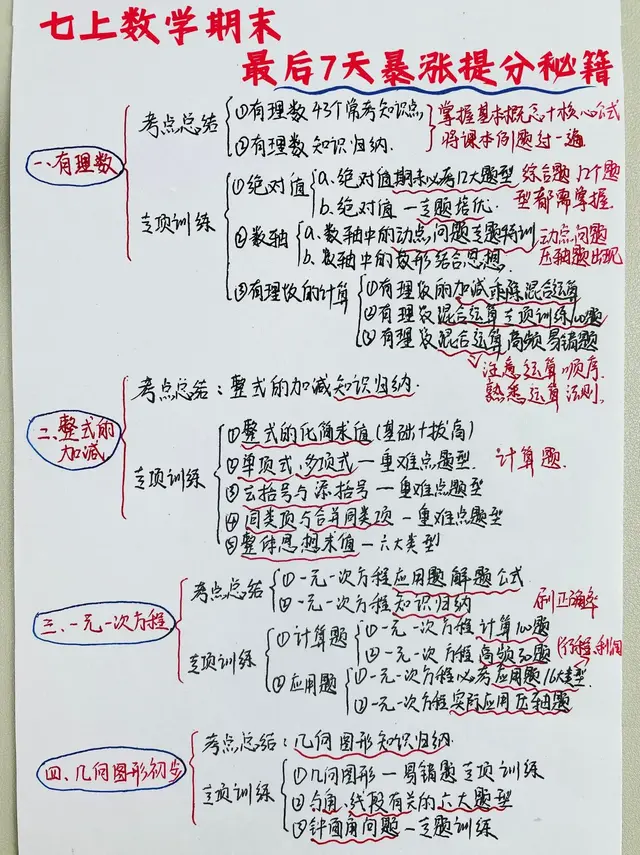 七上数学期末
最后7天暴涨提分秘籍
一.有理数
考点总结
①有理数43个常考知识点
②有理数知识归纳.
掌握基本概念+核心公式
将课本例题过一遍
专项训练
①绝对值
a.绝对值期末必考12大题型
b.绝对值一专题培优.
综合题 12个题
型都需掌握.
②数轴
a.数轴中的动点问题专题特训
b.数轴中的数形结合思想.
动点问题
压轴题出现
③有理数的计算
①有理数的加减乘除混合运算
②有理数混合运算专项训练100题
③有理数混合运算高频易错题
注意运算顺序.
熟悉运算法则.
二.整式的
加减
考点总结：整式的加减知识归纳.
专项训练
①整式的化简求值(基础+拔高)
②单项式、多项式一重难点题型
③去括号与添括号一重难点题型
④同类项与合并同类项一重难点题型
⑤整体思想求值一六大类型
计算题.
三.一元一次方程
考点总结
①一元一次方程应用题解题公式
②一元一次方程知识归纳
专项训练
①计算题
①一元一次方程计算100题
②一元一次方程高频30题
②应用题
①一元一次方程必考应用题16大类型
②一元一次方程实际应用压轴题
四.几何图形初步
考点总结：几何图形知识归纳.
专项训练
①几何图形一易错题专项训练
②与角、线段有关的六大题型
③钟面角问题一专题训练